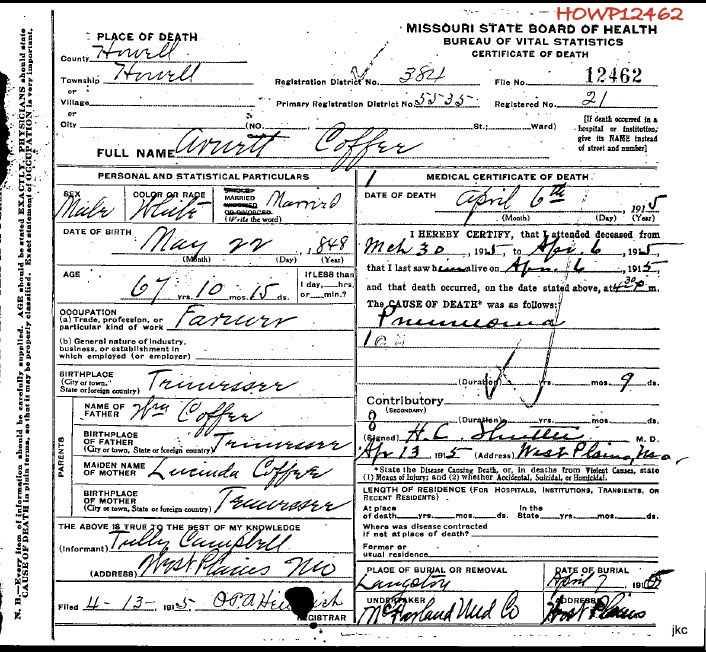 HOWP12462
MISSOURI STATE BOARD OF HEALTH
BUREAU OF VITAL STATISTICS
CERTIFICATE OF DEATH
PLACE OF DEATH
County Howell
Township Howell
or
Village
or
City (NO. St.; Ward)
Registration District No. 384 File No. 12462
Primary Registration District No. 5535 Registered No. 21
[If death occurred in a
hospital or institution,
give its NAME instead
of street and number]
FULL NAME Avrett Coffer
PERSONAL AND STATISTICAL PARTICULARS
SEX Male
COLOR OR RACE White
SINGLE
MARRIED
WIDOWED
OR DIVORCED
(Write the word)
Married
DATE OF BIRTH May 22, 1848
(Month) (Day) (Year)
AGE 67 yrs. 10 mos. 15 ds.
If LESS than
1 day,...hrs.
or......min.?
OCCUPATION
(a) Trade, profession, or
particular kind of work Farmer
(b) General nature of industry,
business, or establishment in
which employed (or employer)
BIRTHPLACE
(City or town,
State or foreign country) Tennessee
PARENTS
NAME OF
FATHER Wm Coffer
BIRTHPLACE
OF FATHER
(City or town, State or foreign country) Tennessee
MAIDEN NAME
OF MOTHER Lucinda Coffer
BIRTHPLACE
OF MOTHER
(City or town, State or foreign country) Tennessee
THE ABOVE IS TRUE TO THE BEST OF MY KNOWLEDGE
(Informant) Tully Campbell
(ADDRESS) West Plains Mo
Filed 4-13-1915
REGISTRAR
MEDICAL CERTIFICATE OF DEATH
DATE OF DEATH April 6th, 1915
(Month) (Day) (Year)
I HEREBY CERTIFY, that I attended deceased from
Mch 30 1915, to Apr. 6, 1915,
that I last saw him alive on Apr. 6, 1915,
and that death occurred, on the date stated above, at 430 m.
The CAUSE OF DEATH* was as follows:
Pneumonia
(Duration) yrs. mos. 9 ds.
Contributory
(SECONDARY)
(Duration) yrs. mos. ds.
(Signed) H.C. M. D.
Apr 13 1915 (Address) West Plains, Mo.
*State the Disease Causing Death, or, in deaths from Violent Causes, state
(1) Means of Injury; and (2) whether Accidental, Suicidal, or Homicidal.
LENGTH OF RESIDENCE (FOR HOSPITALS, INSTITUTIONS, TRANSIENTS, OR
RECENT RESIDENTS).
At place of death......yrs......mos......ds. In the State......yrs......mos......ds.
Where was disease contracted
if not at place of death?
Former or
usual residence
PLACE OF BURIAL OR REMOVAL Langston
DATE OF BURIAL April 7 1915
UNDERTAKER McFarland Und Co
ADDRESS West Plains
N. B.—Every item of information should be carefully supplied. AGE should be stated EXACTLY. PHYSICIANS should state
CAUSE OF DEATH in plain terms, so that it may be properly classified. Exact statement of OCCUPATION is very important.
jkc